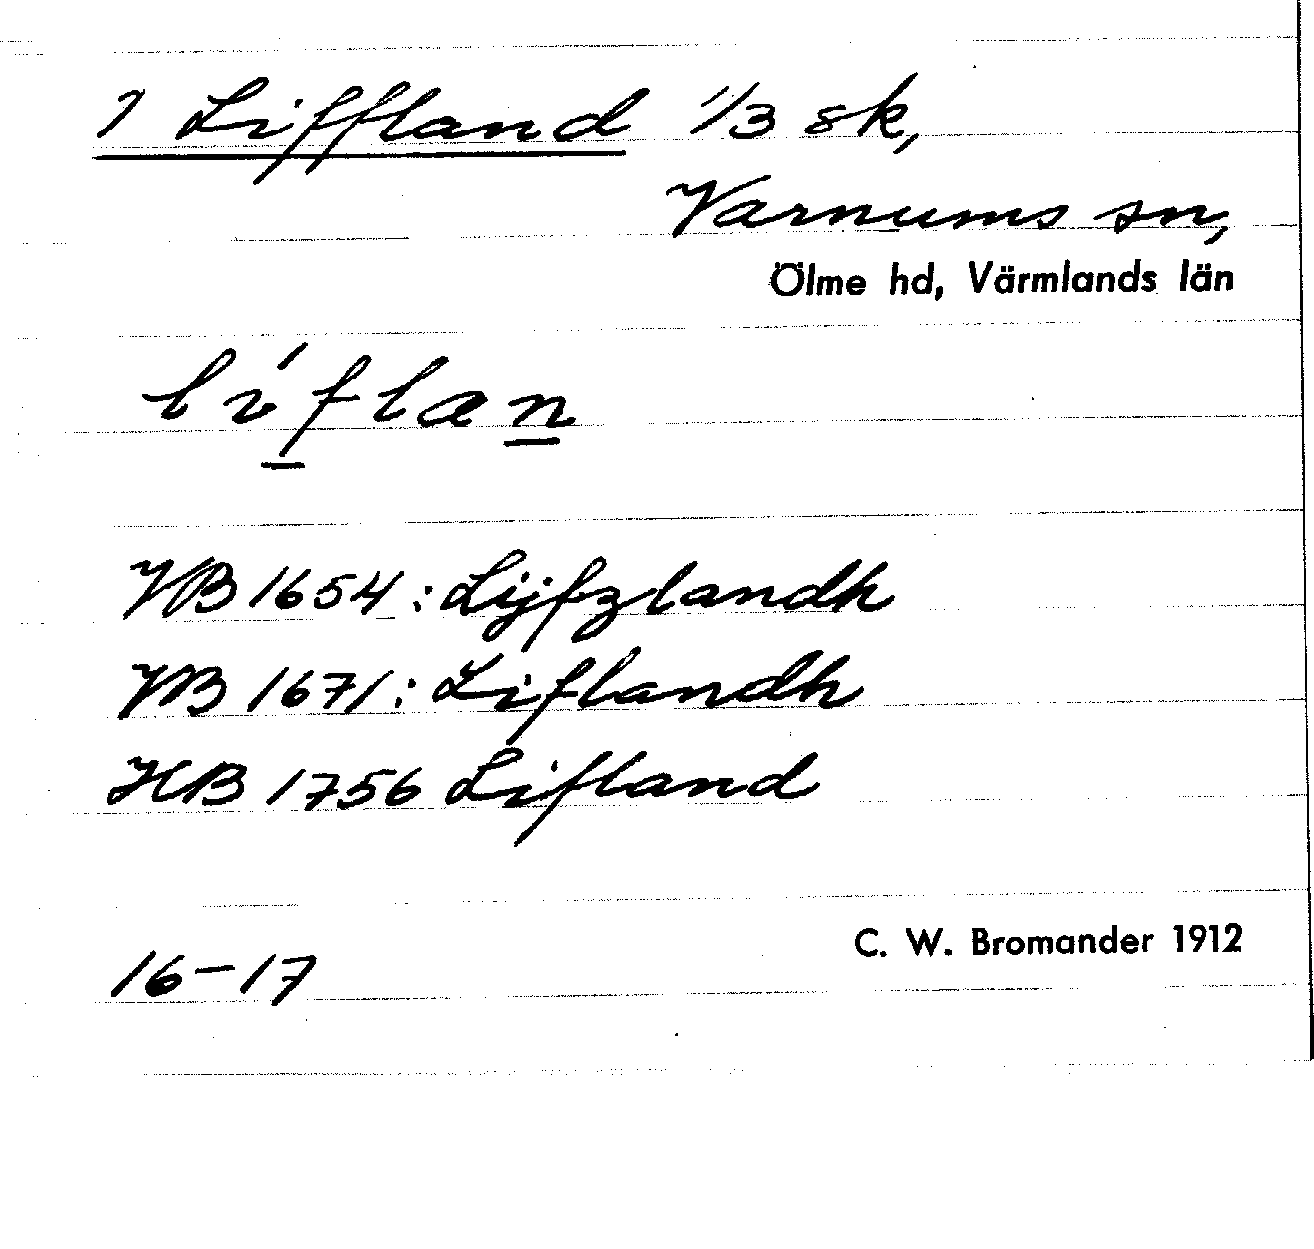 1 Liffland 1/3 sk,
Varnums sn,
Ölme hd, Värmlands län
lıf́læn
JB 1654: Lijfzlandh
JB 1671: Liflandh
HB 1756 Lifland
C. W. Bromander 1912
16-17